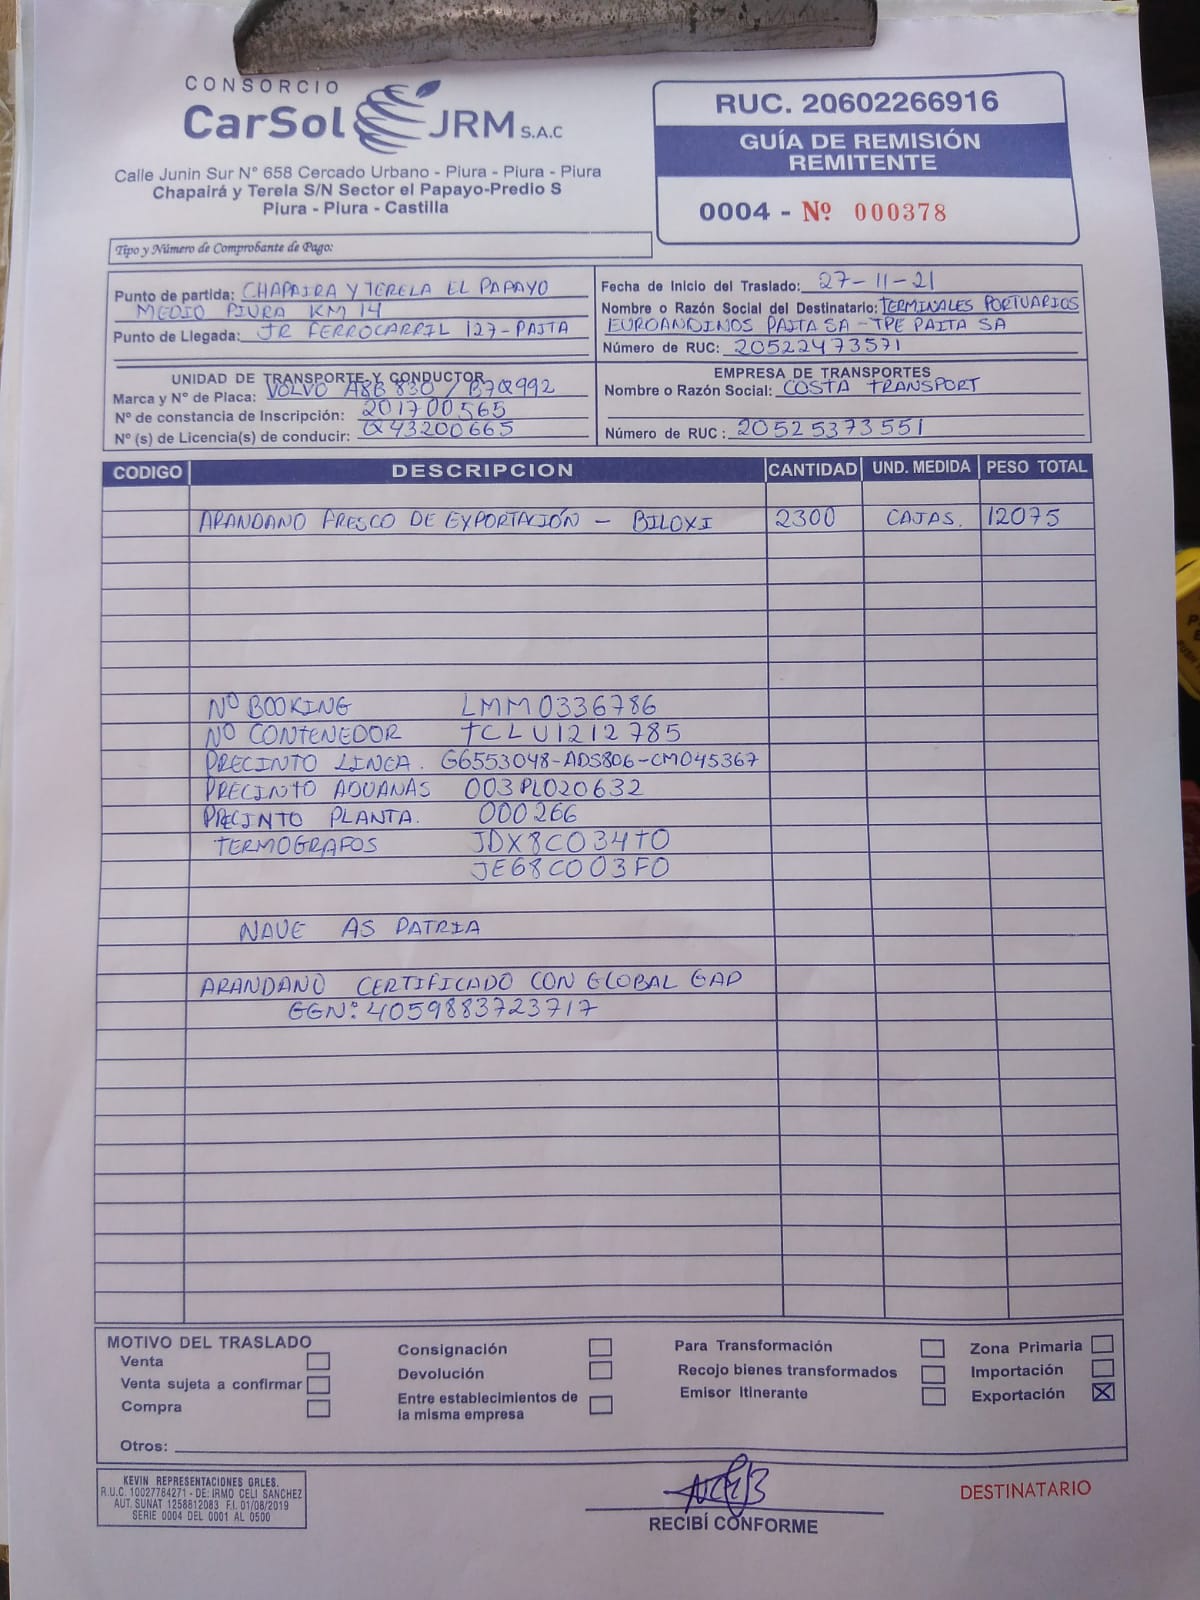 CONSORCIO
CarSol JRM S.A.C
Calle Junin Sur N° 658 Cercado Urbano - Piura - Piura - Piura
Chapairá y Terela S/N Sector el Papayo-Predio S
Piura - Piura - Castilla
RUC. 20602266916
GUÍA DE REMISIÓN
REMITENTE
0004 - Nº 000378
Tipo y Número de Comprobante de Pago:
Punto de partida: CHAPAIRA Y TERELA EL PAPAYO
MEDIO PIURA KM 14
Punto de Llegada: JR FERROCARRIL 127-PAITA
Fecha de Inicio del Traslado: 27-11-21
Nombre o Razón Social del Destinatario: TERMINALES PORTUARIOS
EUROANDINOS PAITA SA - TPE PAITA SA
Número de RUC: 20522473571
UNIDAD DE TRANSPORTE Y CONDUCTOR
Marca y N° de Placa: VOLVO A8B 830 / B7Q992
N° de constancia de Inscripción: 201700565
N° (s) de Licencia(s) de conducir: Q43200665
EMPRESA DE TRANSPORTES
Nombre o Razón Social: COSTA TRANSPORT
Número de RUC : 20525373551
CODIGO DESCRIPCION CANTIDAD UND. MEDIDA PESO TOTAL
ARANDANO FRESCO DE EXPORTACIÓN - BILOXI 2300 CAJAS. 12075
Nº BOOKING LMM0336786
NO CONTENEDOR TCLU1212785
PRECINTO LINEA. G6553048-ADS806-CM045367
PRECINTO ADUANAS 003PL020632
PRECINTO PLANTA. 000266
TERMOGRAFOS JDX8C034T0
JE68C003F0
NAVE AS PATRIA
ARANDANO CERTIFICADO CON GLOBAL GAP
GGN: 4059883723717
MOTIVO DEL TRASLADO
Venta
Venta sujeta a confirmar
Compra
Consignación
Devolución
Entre establecimientos de
la misma empresa
Para Transformación
Recojo bienes transformados
Emisor Itinerante
Zona Primaria
Importación
Exportación X
Otros:
KEVIN REPRESENTACIONES GRLES.
R.U.C. 10027784271 - DE: IRMO CELI SANCHEZ
AUT. SUNAT 1258812083 F.I. 01/08/2019
SERIE 0004 DEL 0001 AL 0500
RECIBÍ CONFORME
DESTINATARIO